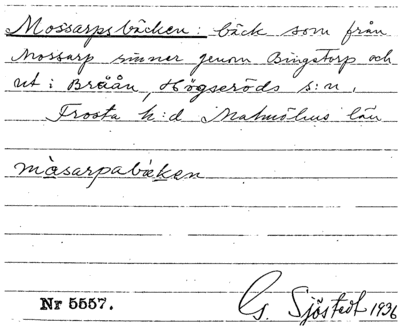 Mossarpsbäcken: bäck som från
Mossarp rinner genom Bingstorp och
ut i Bråån, Högseröds s:n,
Frosta h:d Malmöhus län
måsarpabäcken
Nr 5557.
G. Sjöstedt 1936